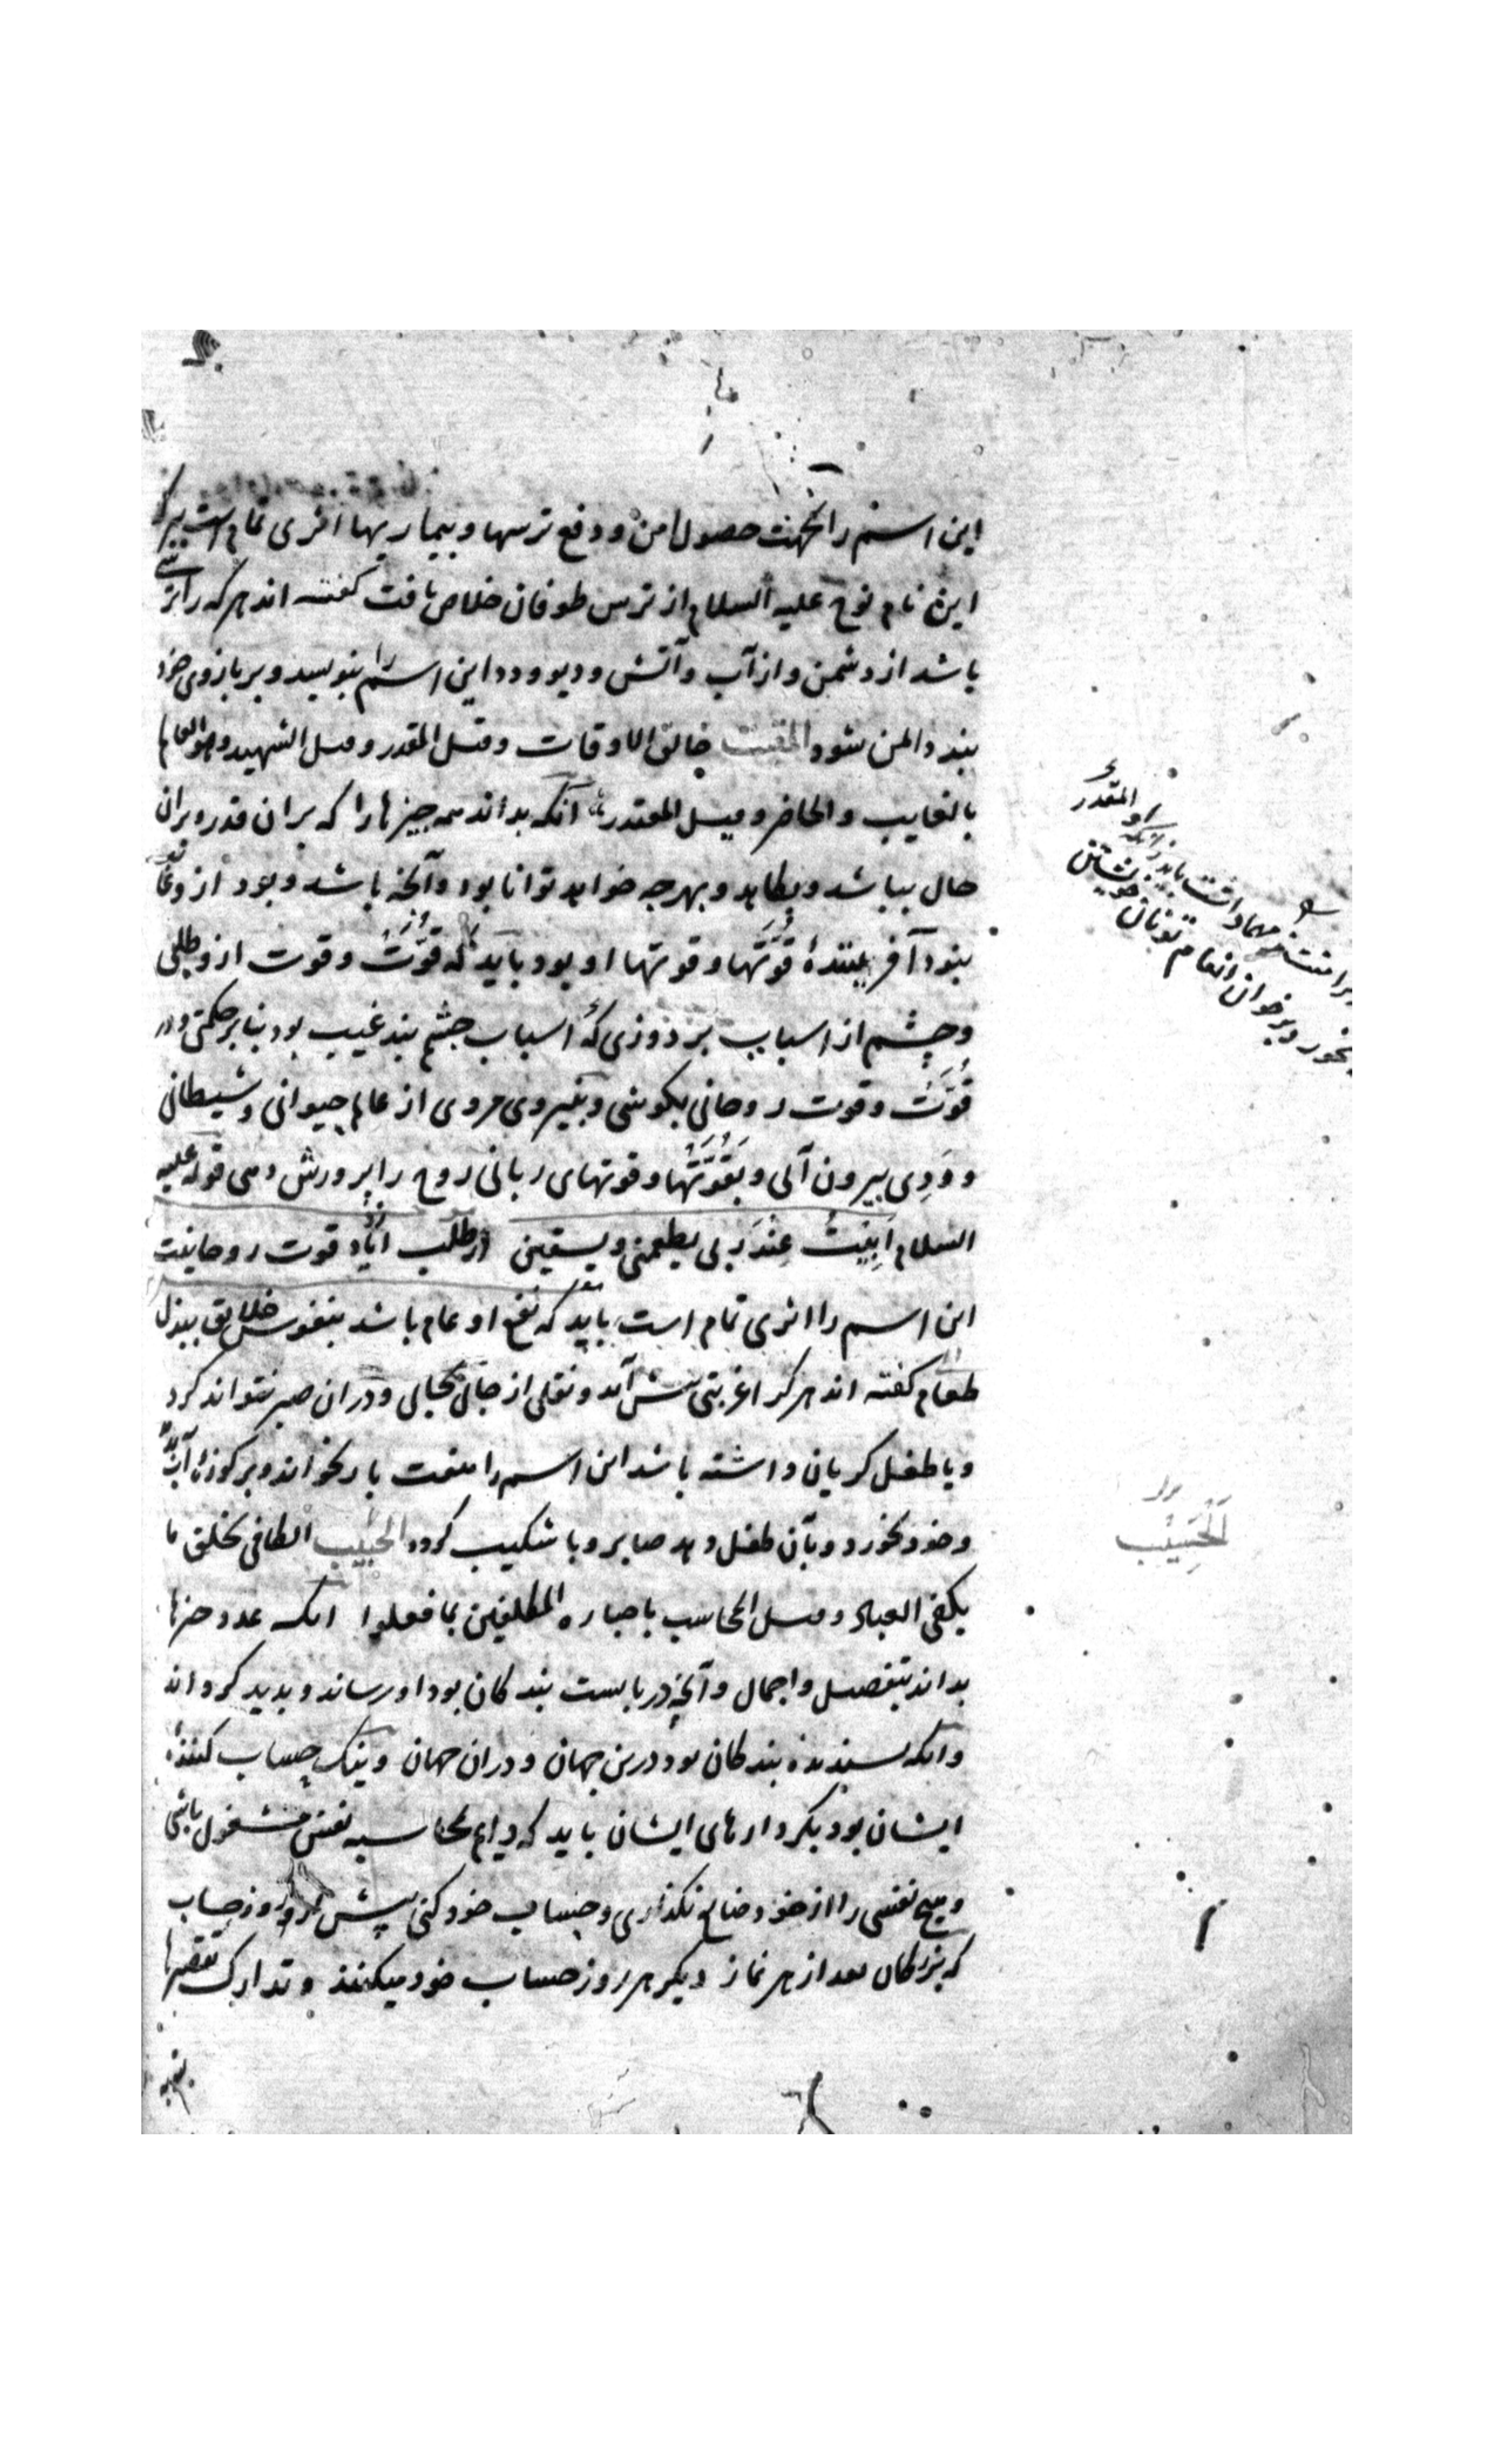 این اسم را بجهت حصول امن و دفع ترسها و بیماریها اثری تمام است ببرکه
این نام نوح علیه السلام از ترس طوفان خلاص یافت گفته اند هرکه را ترسی
باشد از دشمن و از آب و آتش و دیو و دد این اسم را بنویسد و بر بازوی خود
بندد ایمن شود المقیت خالق الاوقات وقیل المقدر وقیل الشهید وهو العالم
بالغایب والحاضر وقیل المقتدر آنکه بداند همه چیزها را که بران قدر و بران
حال بباشد و بکاهد و بهرچه خواهد توانا بود و آنچه باشد و بود ازو غایب
نبود آفریننده قوتها و قوتها او بود باید که قوت و قوت ازو طلبی
و چشم از اسباب بردوزی که اسباب چشم بند غیب بود بنابر حکمتی و در
قوت و قوت روحانی بکوشی و بنیروی مردی از عالم حیوانی و شیطانی
و ددی بیرون آئی و بقوتها و قوتهای ربانی روح را پرورش دهی قوله علیه
السلام ابیت عند ربی یطعمنی ویسقینی در طلب قوت روحانیت
این اسم را اثری تمام است باید که نفع او عام باشد بنفوس خلایق ببذل
طعام گفته اند هر کرا غربتی پیش آید و نقلی از جائی بجائی و دران صبر نتواند کرد
و یا طفل گریان داشته باشد این اسم را هفت بار بخواند و بر کوزه آب دمد
و خود بخورد و بآن طفل دهد صابر و با شکیب گردد الحسیب الکافی بخلق ما
یکفی العباد وقیل المحاسب باخباره المکلفین بما فعلوا آنکه عدد چیزها
بداند بتفصیل و اجمال و آنچه دربایست بندگان بود او رساند و پدید گرداند
و آنکه بسنده بندگان بود درین جهان و دران جهان و نیک حساب کننده
ایشان بود بکردارهای ایشان باید که دایم بمحاسبه نفس مشغول باشی
و هیچ نفسی را از خود ضایع نگذاری و حساب خود کنی پیش از روز حساب
که بزرگان بعد از هر نماز دیگر هر روز حساب خود میکنند و تدارک تقصیرها
المقدر
بخور و بر خوان انعام تو نان خویشتن
الحسیب